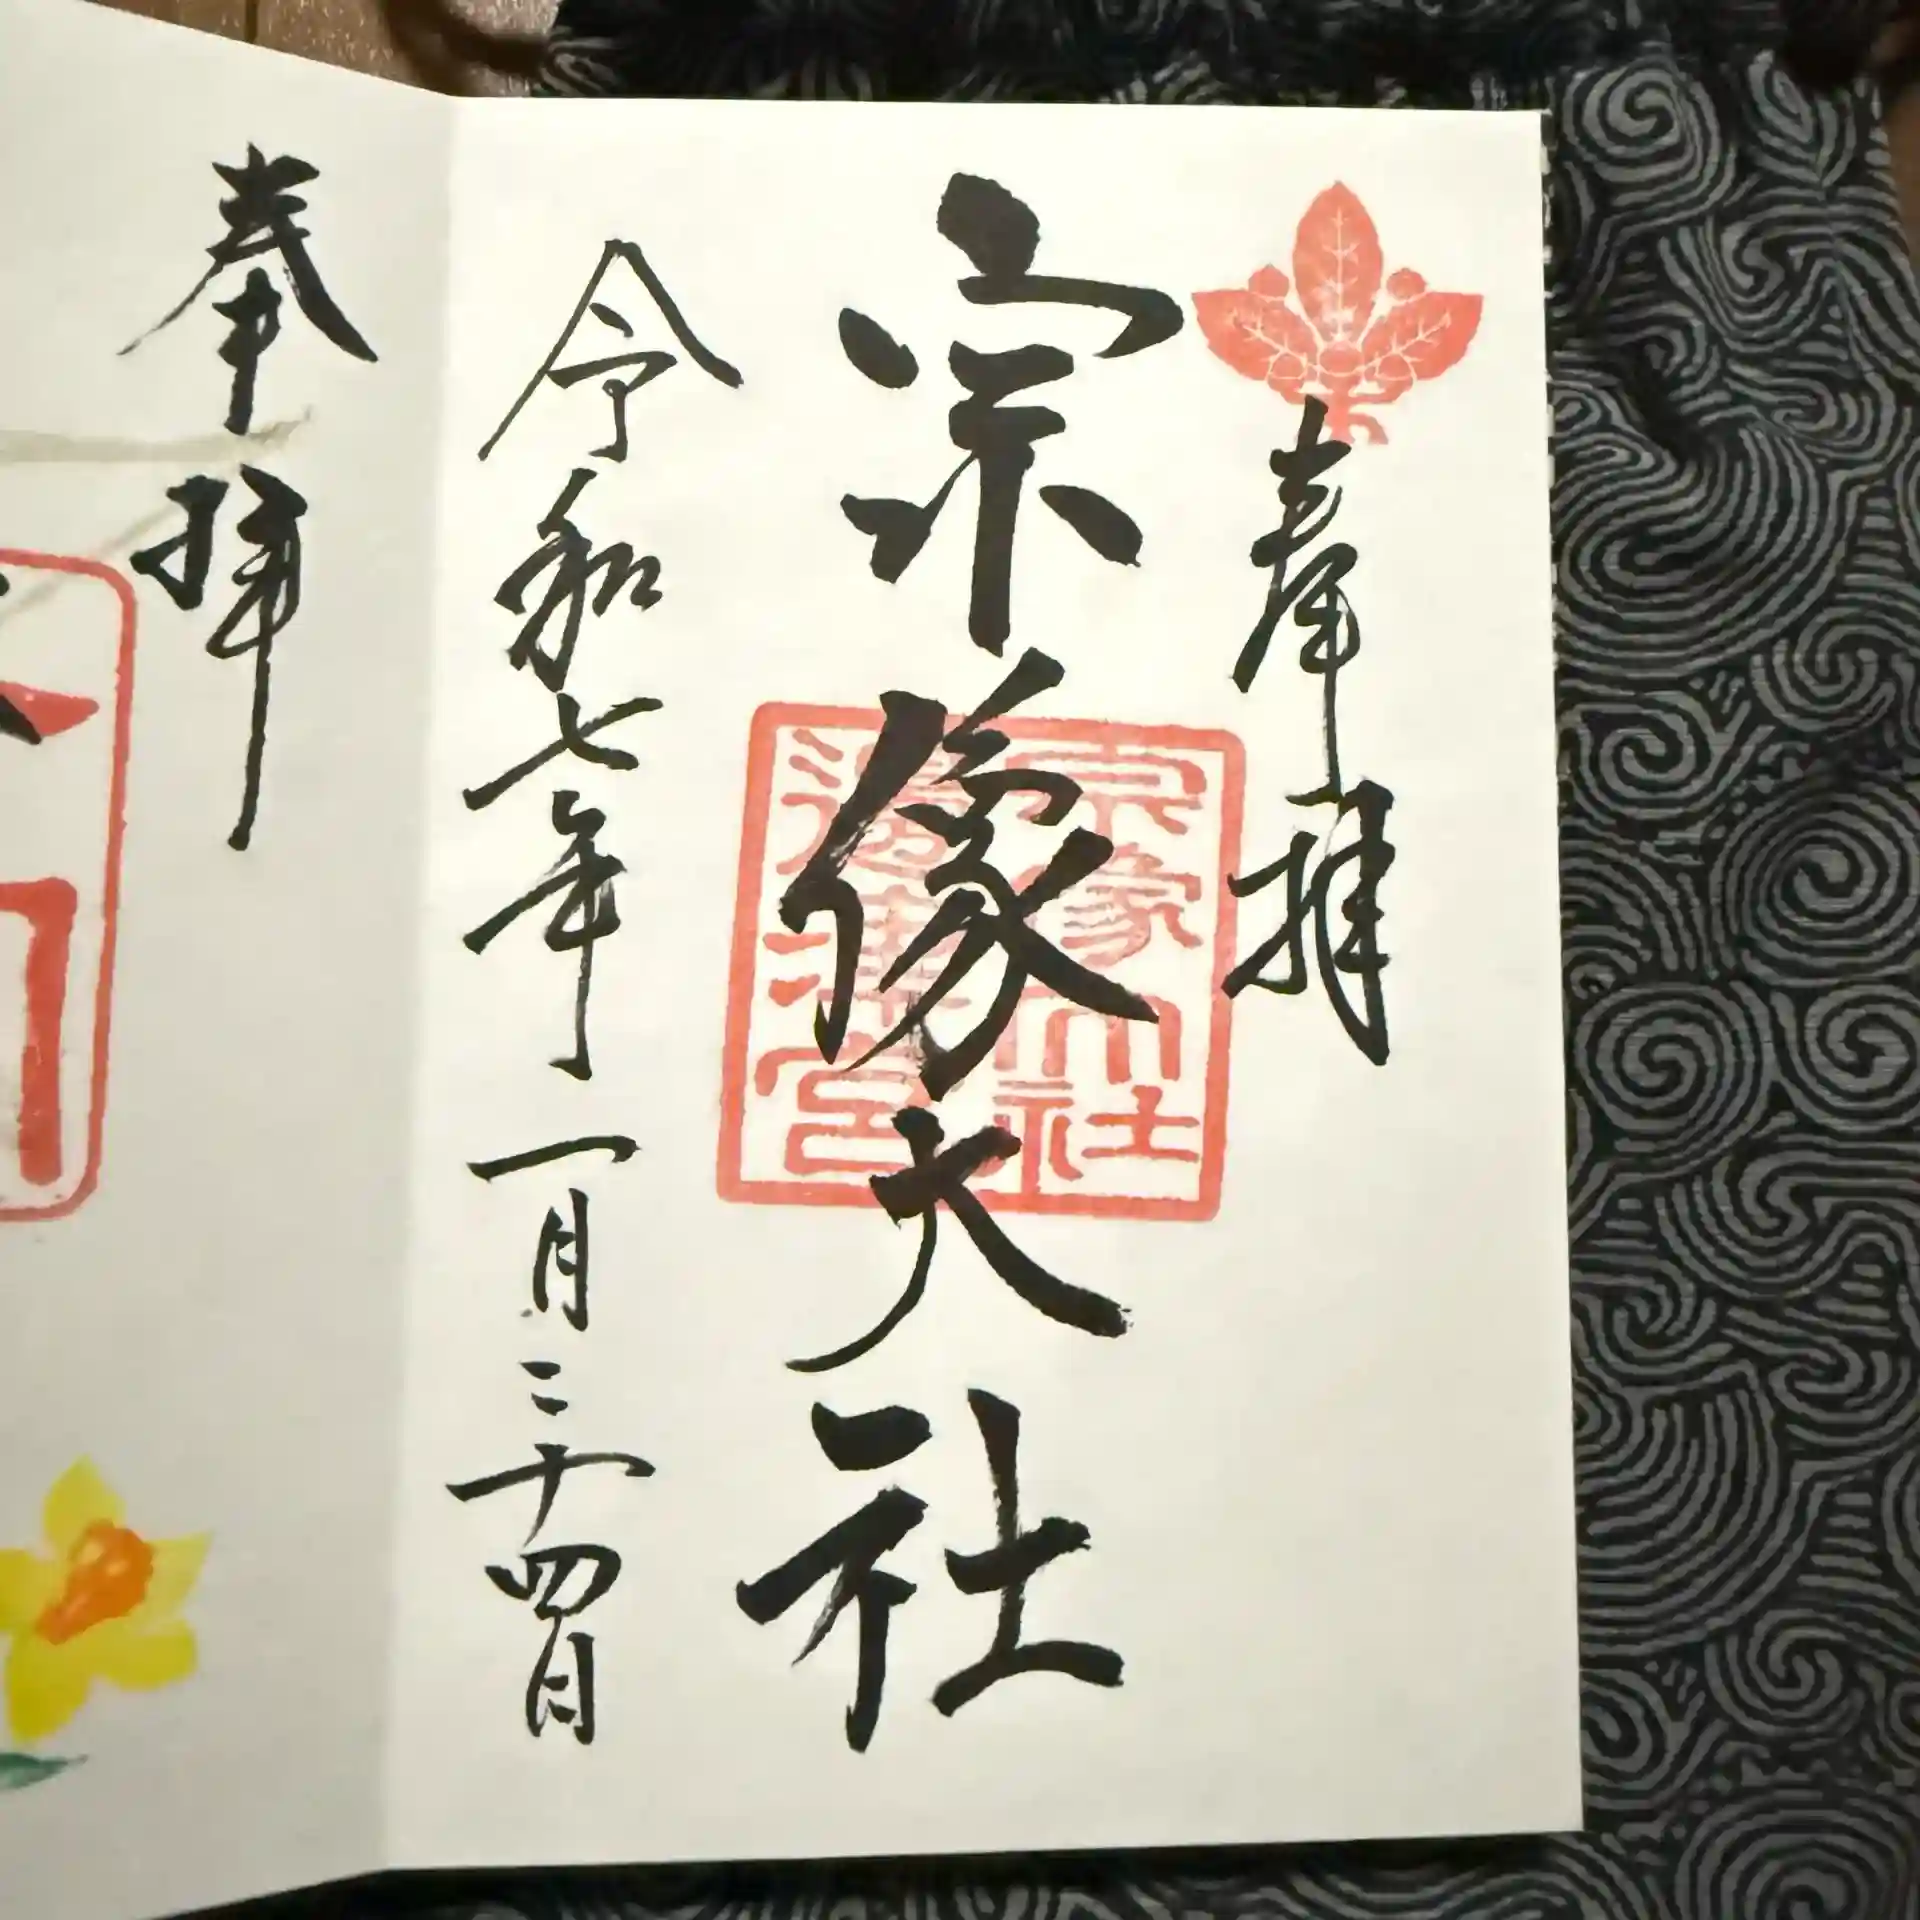 奉拝
宗像大社
宗像大社
邊津宮
令和七年一月二十四日
奉拝